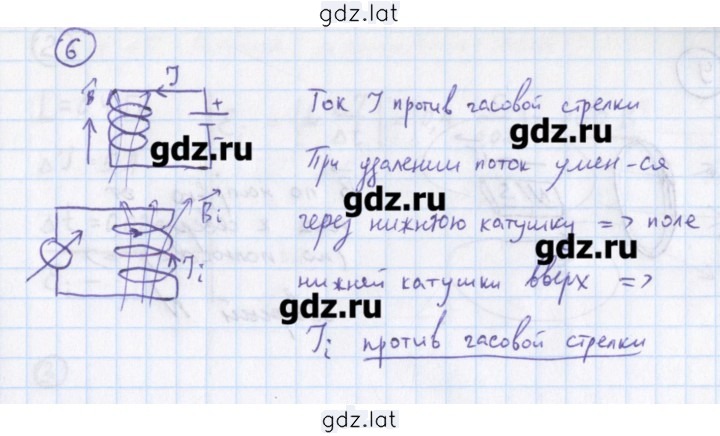 gdz.lat
6
I
B
+
-
Ток I против часовой стрелки
gdz.ru
gdz.ru
При удалении поток умен-ся
gdz.ru
Bi
через нижнюю катушку => поле
gdz.ru
Ii
нижней катушки вверх =>
gdz.ru
Ii против часовой стрелки
gdz.lat